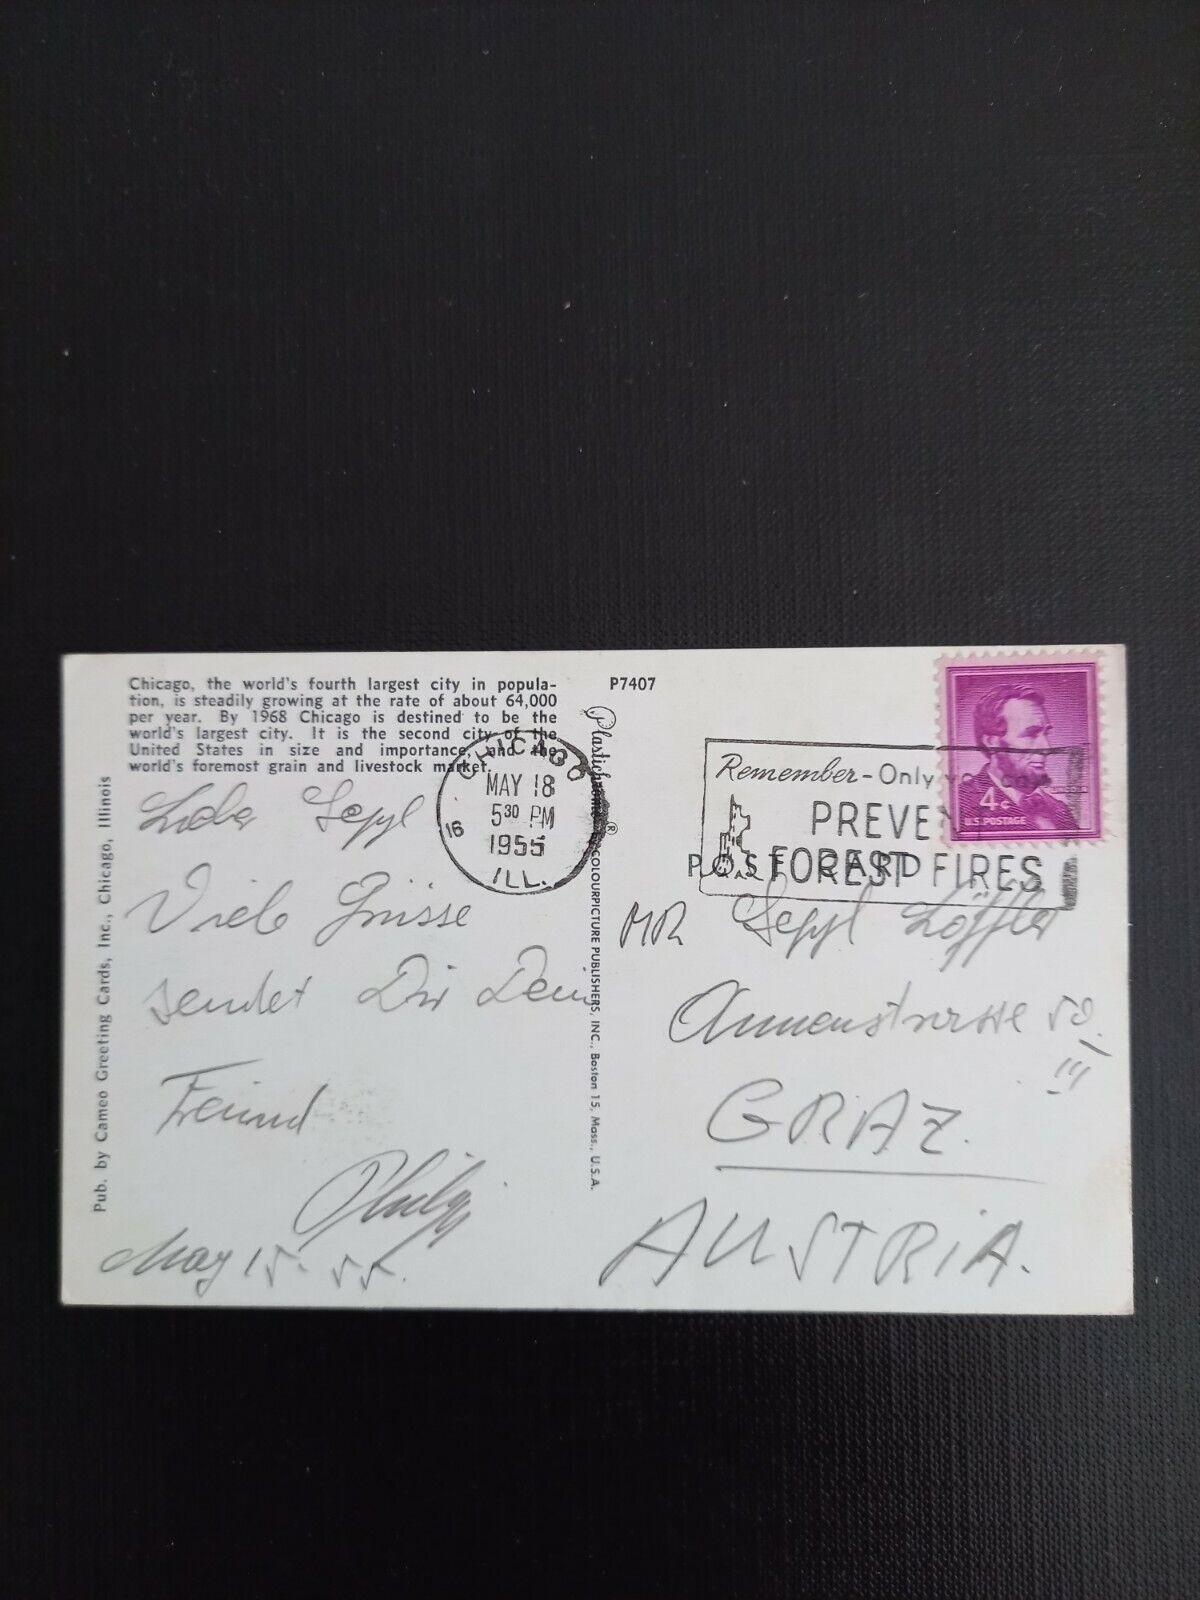 Chicago, the world's fourth largest city in popula-
tion, is steadily growing at the rate of about 64,000
per year. By 1968 Chicago is destined to be the
world's largest city. It is the second city of the
United States in size and importance, and the
world's foremost grain and livestock market.
P7407
Pub. by Cameo Greeting Cards, Inc., Chicago, Illinois
Plastichrome®
COLOURPICTURE PUBLISHERS, INC., Boston 15, Mass., U.S.A.
POST CARD
CHICAGO
MAY 18
5 30 PM
1955
ILL.
16
Remember - Only you can
PREVE
FOREST FIRES
4¢
U.S. POSTAGE
LINCOLN
Lieber Seppl
Viele Grüsse
sendet Dir Dein
Freund
Philipp
May 15. 55.
MR Seppl Löffler
Annenstrasse 50.
GRAZ.
AUSTRIA.